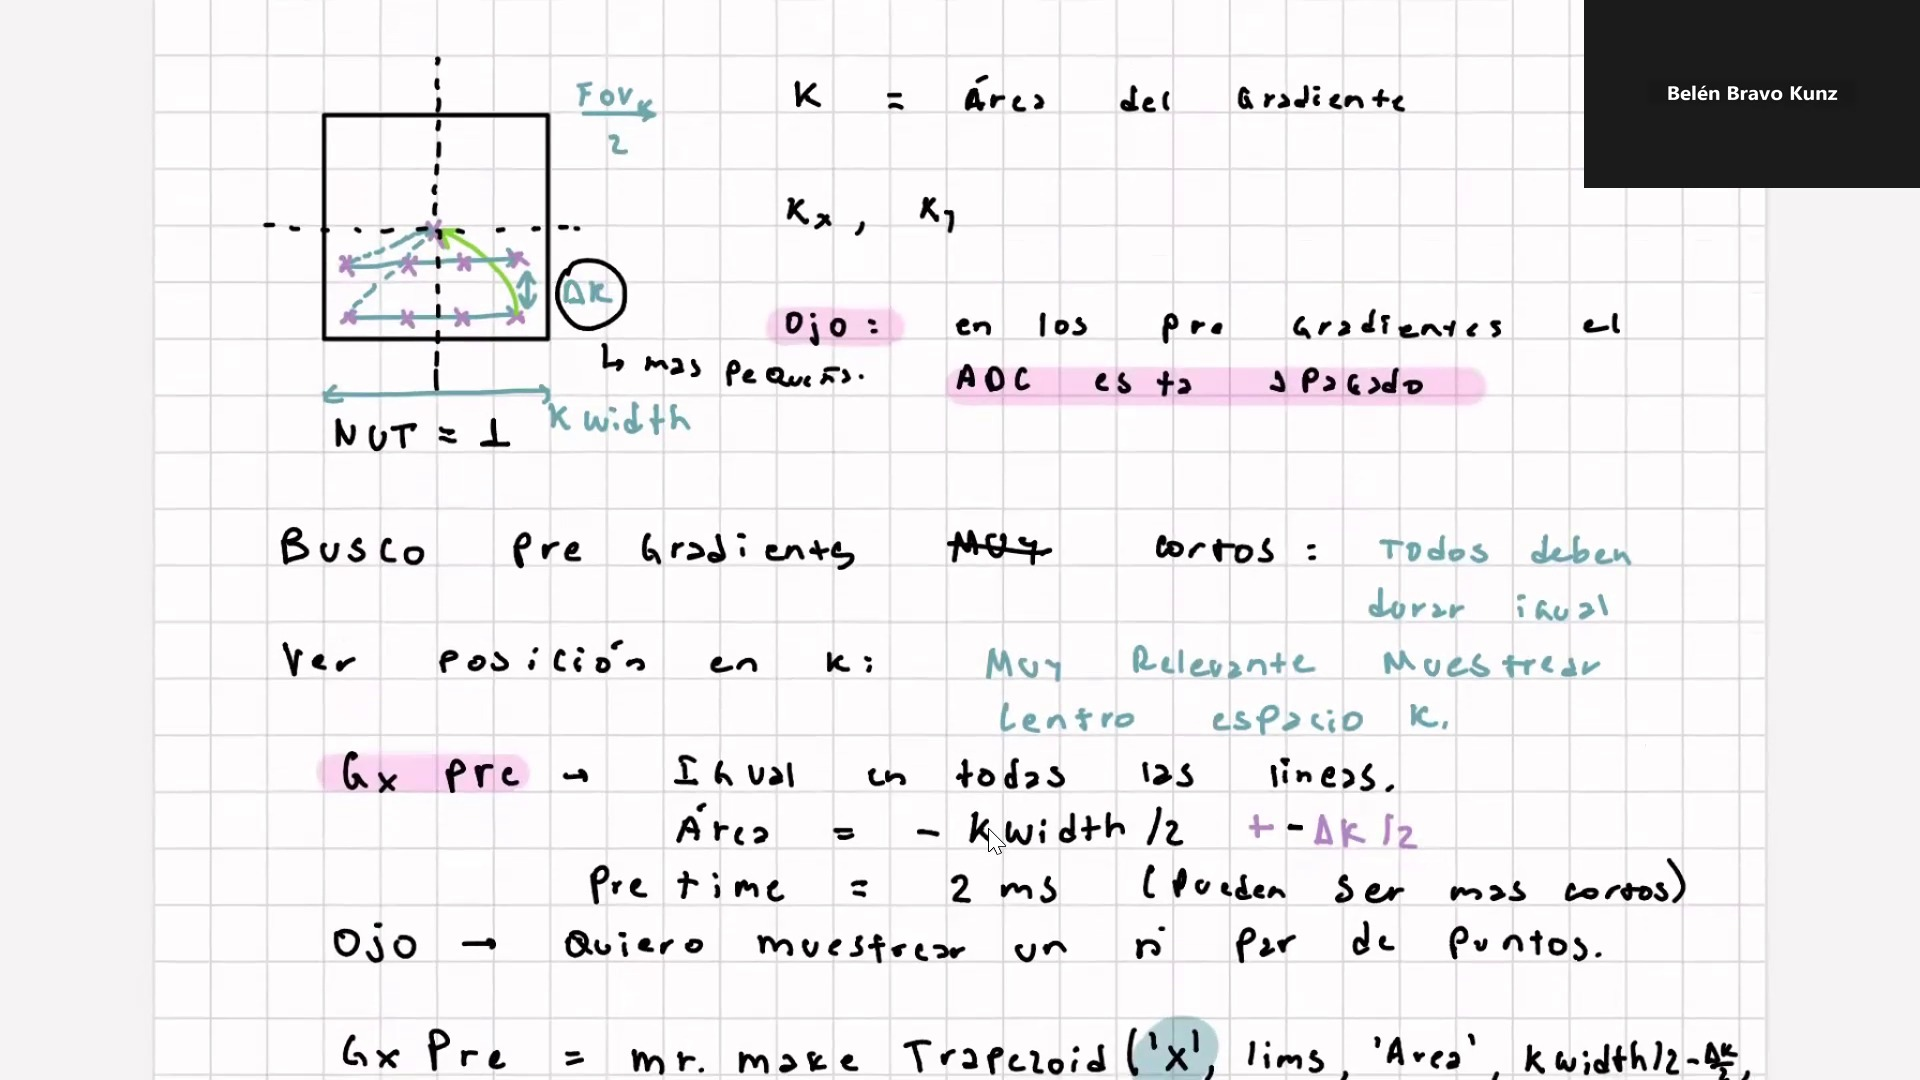 Belén Bravo Kunz
FOVK
2
K = Área del Gradiente
Kx , Ky
ΔK
↳ mas pequeño.
Ojo: en los pre Gradientes el
ADC esta apagado
K width
NUT = 1
Busco Pre Gradients Muy cortos: Todos deben
durar igual
Ver posición en K: Muy Relevante Muestrear
Centro espacio K.
Gx pre → Igual en todas las lineas.
Área = - Kwidth /2 + - ΔK/2
Pre time = 2 ms (Pueden ser mas cortos)
Ojo → Quiero muestrear un n° par de puntos.
Gx Pre = mr. make Trapezoid ('x', lims, 'Area', Kwidth/2-ΔK/2,